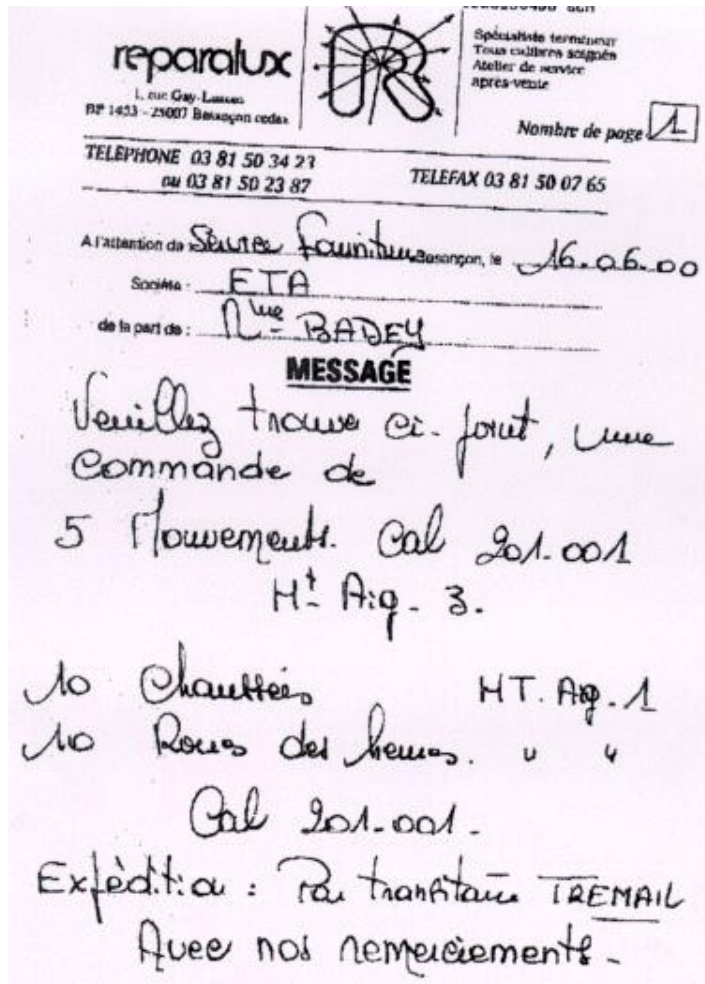 reparalux
1, rue Gay-Lussac
BP 1453 - 25007 Besançon cedex
Spécialiste termineur
Tous calibres soignés
Atelier de service
après-vente
Nombre de page 1
TELEPHONE 03 81 50 34 23
ou 03 81 50 23 87
TELEFAX 03 81 50 07 65
A l'attention de : Service Fourniture Besançon, le 16.06.00
Société : ETA
de la part de : Mme BADEY
MESSAGE
Veuillez trouver ci-joint, une
Commande de
5 Mouvements. Cal 201.001
Ht Aig - 3.
10 Chaussées HT. Aig. 1
10 Roues des heures. " "
Cal 201.001.
Expédition : Par transitaire TREMAIL
Avec nos remerciements.